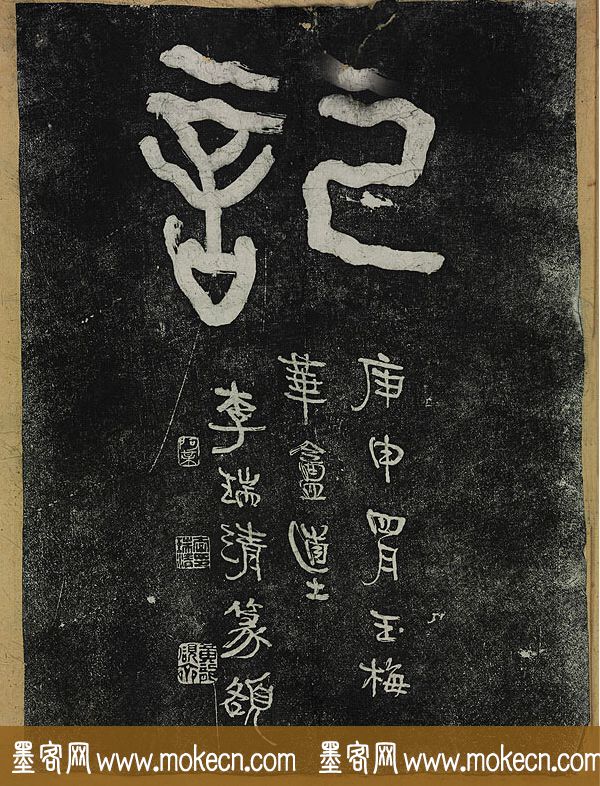 記
庚申四月玉梅
華盦道士
李瑞清篆額
墨客网 www.mokecn.com 墨客网 www.mokecn.com